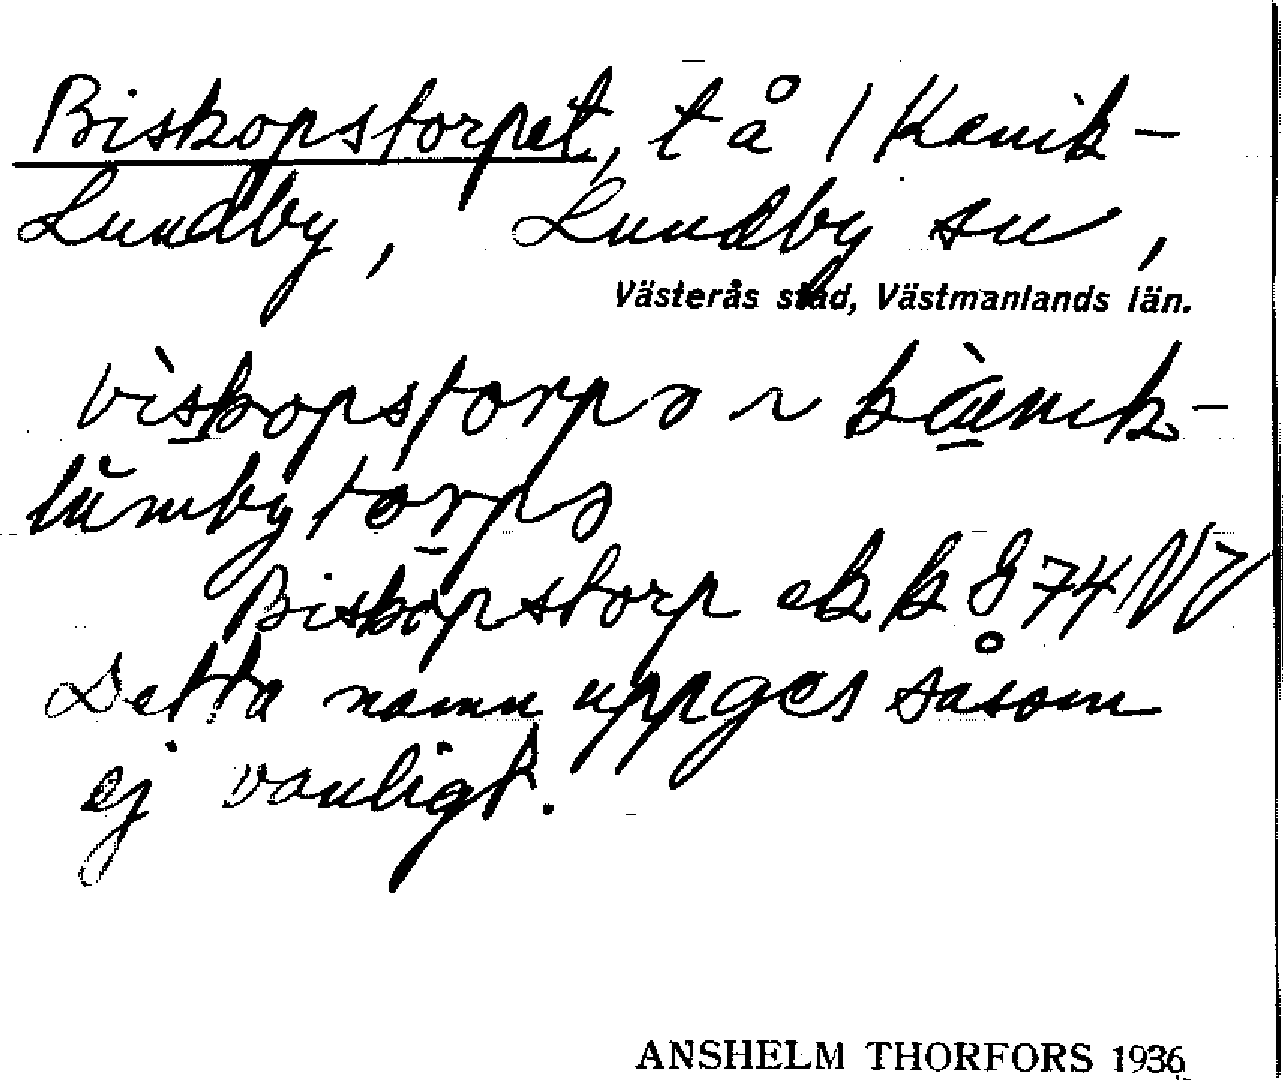 Biskopstorpet, t å 1 Kanik-
Lundby, Lundby sn,
Västerås stad, Västmanlands län.
bìskopstorpə ~
lùmbytorpə
Biskopstorp ek bl 8 74 NV
Detta namn uppges såsom
ej vanligt.
ANSHELM THORFORS 1936